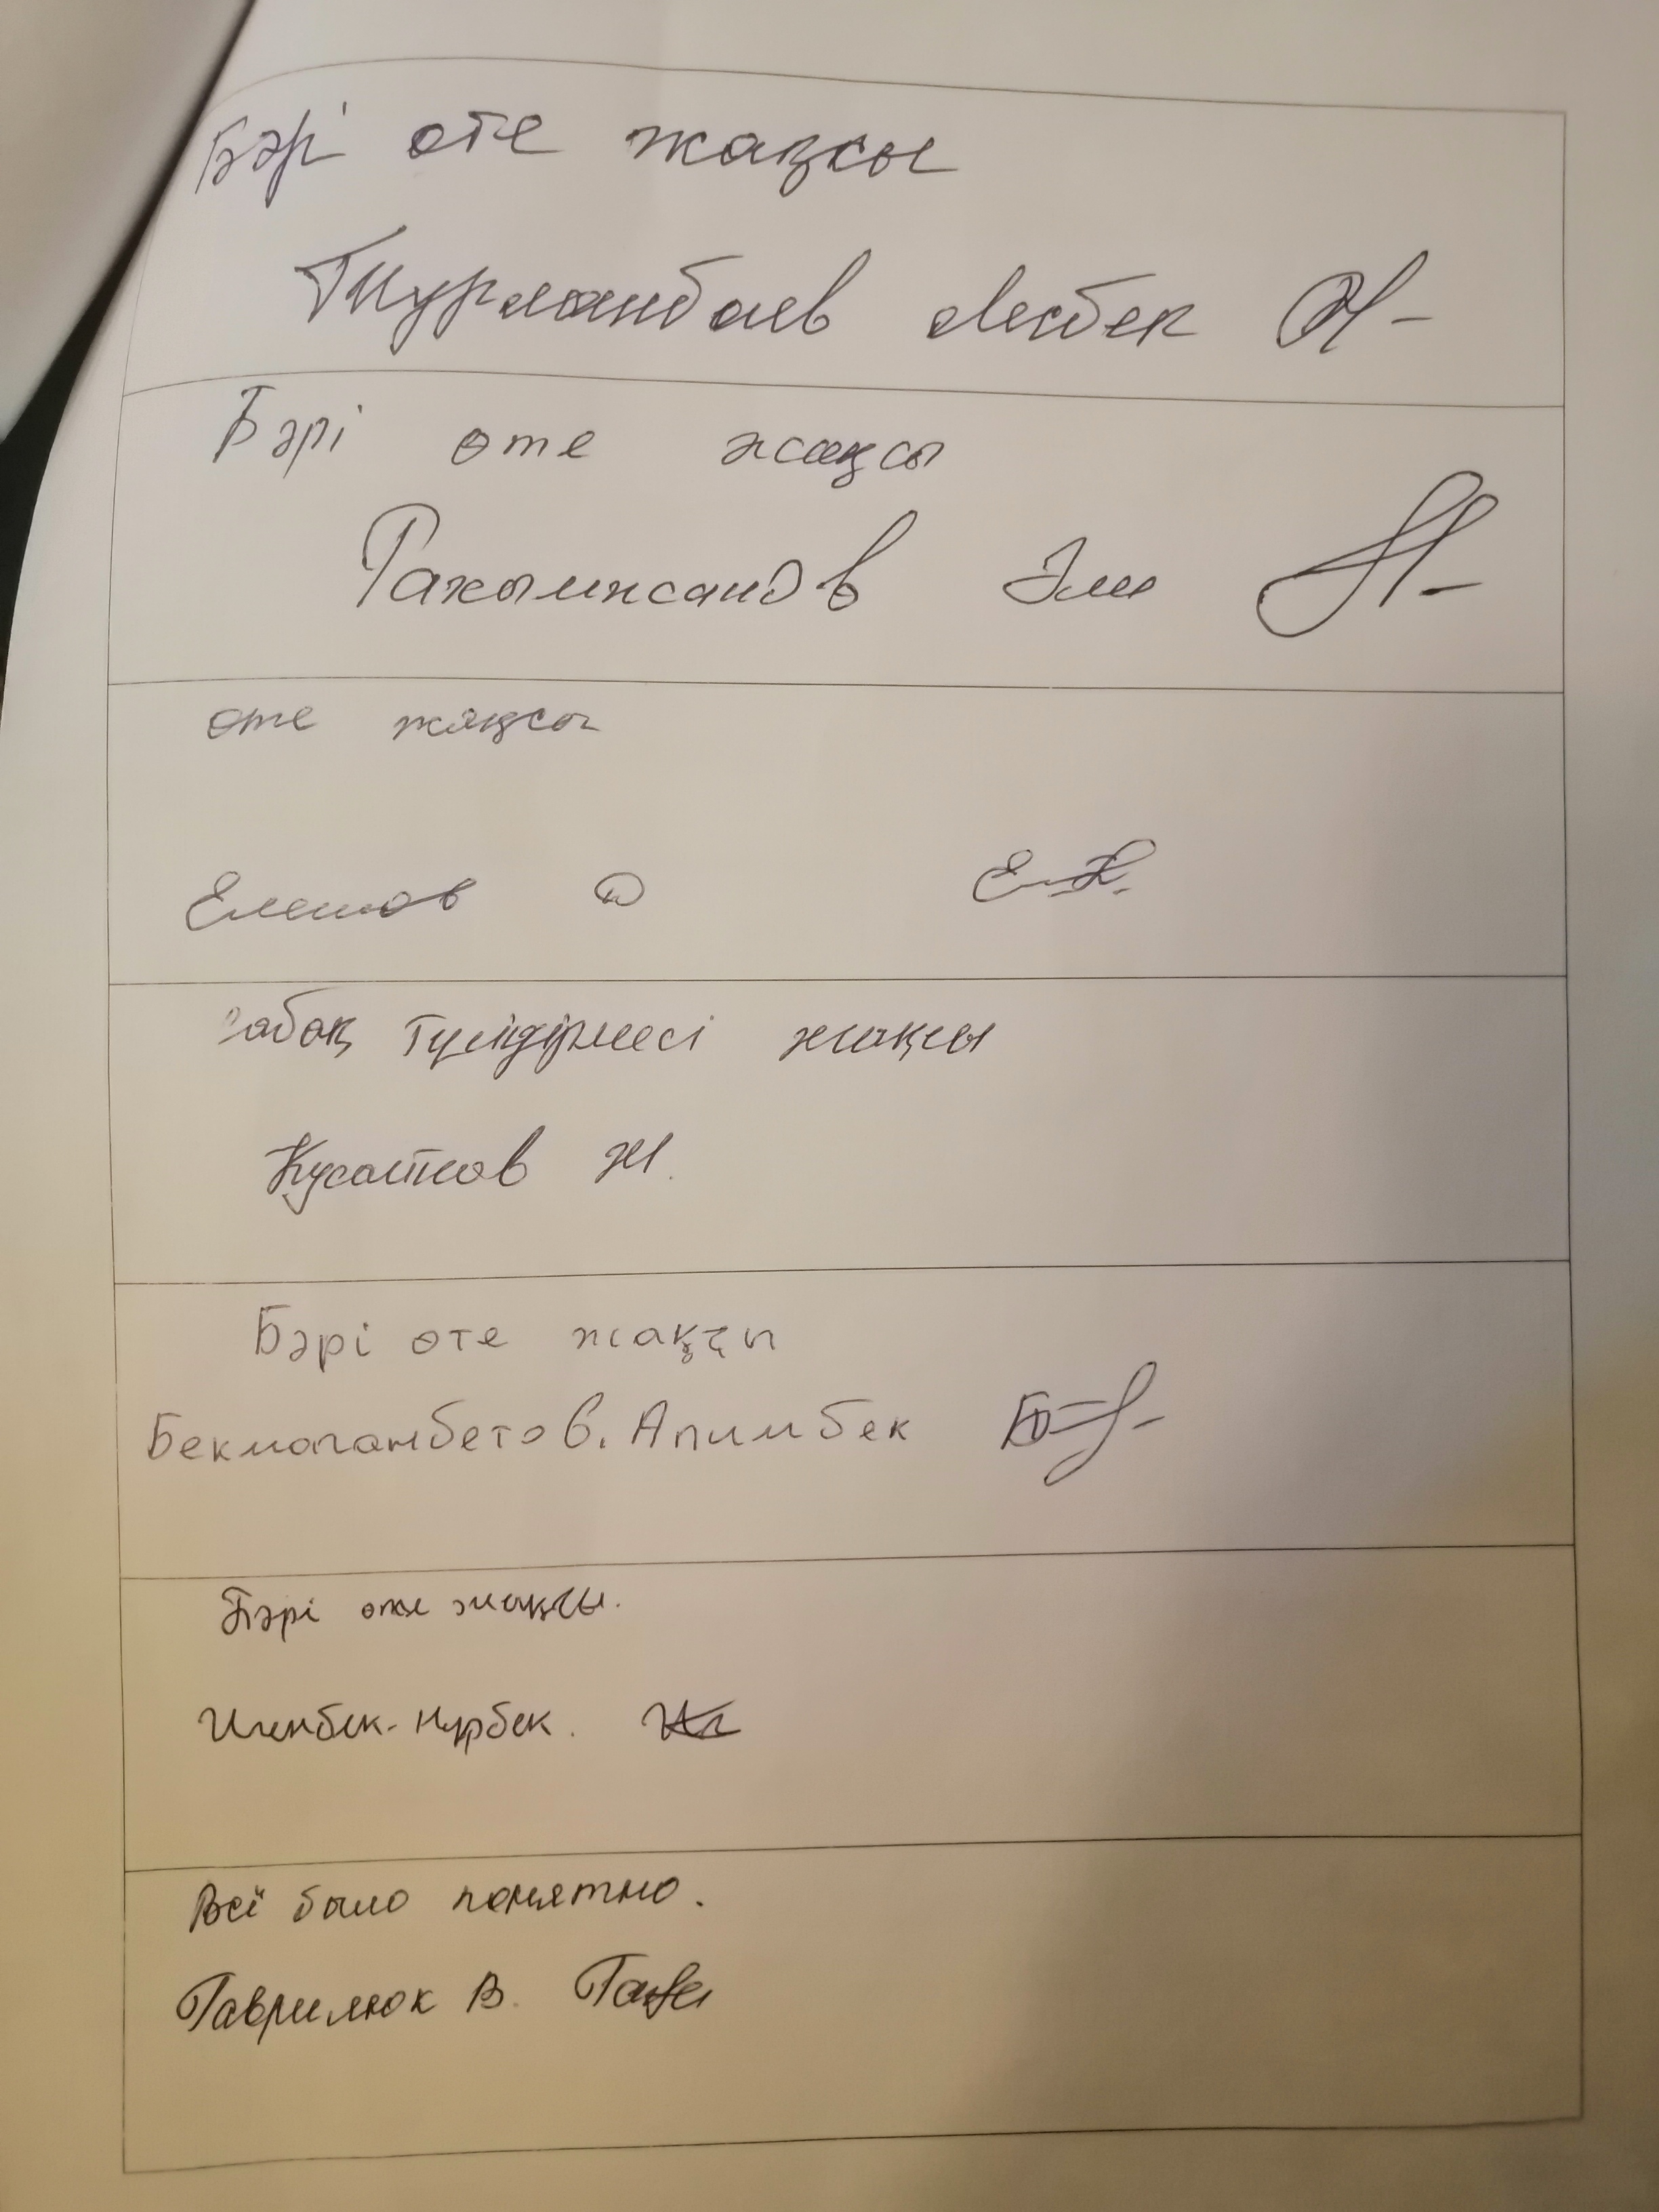 Бәрі өте жақсы
Турманбаев
Бәрі өте жақсы
Рахымжанов Әли
өте жақсы
Елешов
Сабақ түсіндірмесі жақсы
Кусаинов Ж.
Бәрі өте жақсы
Бекмаганбетов. Алимбек
Бәрі өте жақсы.
Игенбек-Нурбек.
Всё было понятно.
Гаврилюк В.